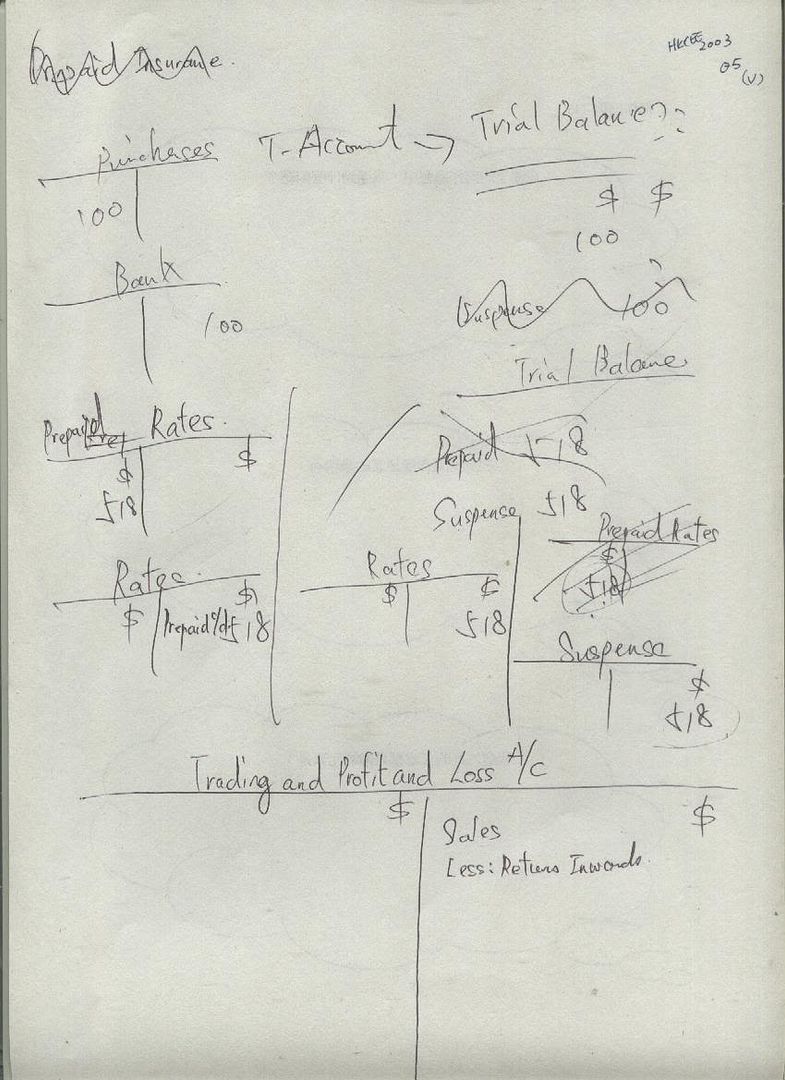 Prepaid Insurance.
HKCEE 2003
Q5 (v)
T-Account → Trial Balance??
Purchases
100
$ $
100
Bank
100
Suspense 100
Trial Balance
Prepaid Rates.
$ $
518
Prepaid 518
Suspense 518
Prepaid Rates
$
518
Rates.
$ $
Prepaid c/d 518
Rates
$ $
518
Suspense
$
518
Trading and Profit and Loss A/C
$ $
Sales
Less: Returns Inwards.